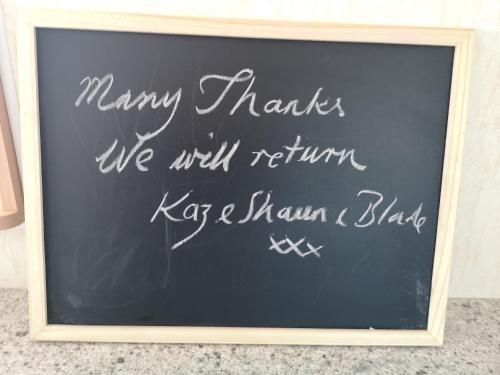 Many Thanks
We will return
Kaz e Shaun e Blade
xxx